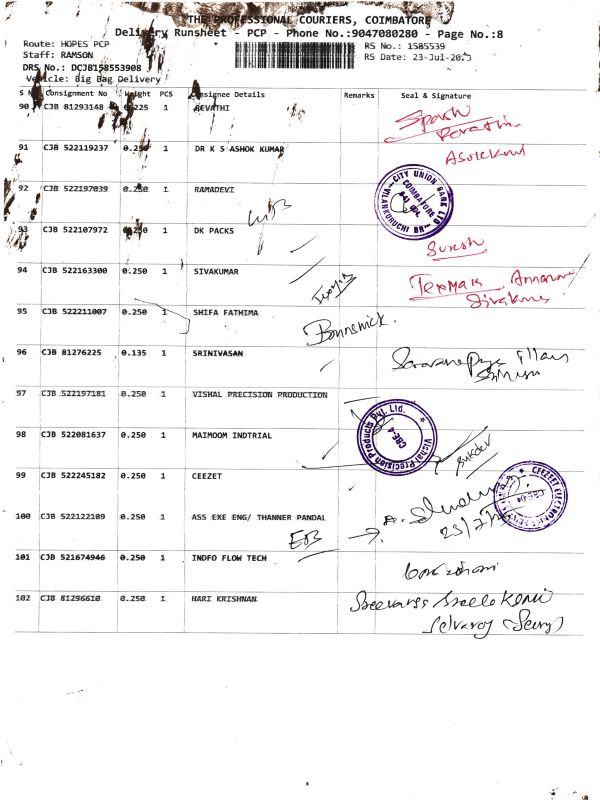 THE PROFESSIONAL COURIERS, COIMBATORE
Delivery Runsheet - PCP - Phone No.:9047080280 - Page No.:8
Route: HOPES PCP
Staff: RAMSON
DRS No.: DCJB158553908
Vehicle: Big Bag Delivery
RS No.: 1585539
RS Date: 23-Jul-2025
S Consignment No Weight PCS Consignee Details Remarks Seal & Signature
90 CJB 81293148 0.225 1 REVATHI
91 CJB 522119237 0.250 1 DR K S ASHOK KUMAR
92 CJB 522197039 0.250 1 RAMADEVI
CITY UNION BANK LTD
COIMBATORE
VILANKURUCHI BR
93 CJB 522107972 0.250 1 DK PACKS
Suresh
94 CJB 522163300 0.250 1 SIVAKUMAR
Texmak
Sivakumar
95 CJB 522211007 0.250 1 SHIFA FATHIMA
96 CJB 81276225 0.135 1 SRINIVASAN
97 CJB 522197181 0.250 1 VISHAL PRECISION PRODUCTION
Vishal Precision Products Pvt. Ltd.
CBE-4
98 CJB 522081637 0.250 1 MAIMOOM INDTRIAL
99 CJB 522245182 0.250 1 CEEZET
100 CJB 522122189 0.250 1 ASS EXE ENG/ THANNER PANDAL
EB
23/7/
101 CJB 521674946 0.250 1 INDFO FLOW TECH
102 CJB 81296610 0.250 1 HARI KRISHNAN